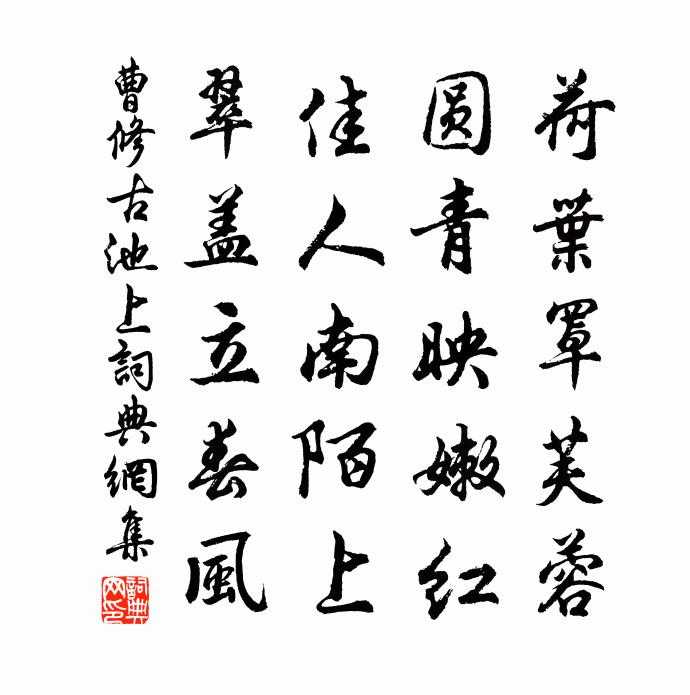 荷葉罩芙蓉
圆青映嫩红
佳人南陌上
翠盖立春風
曹修古池上詞典網集
詞典网印